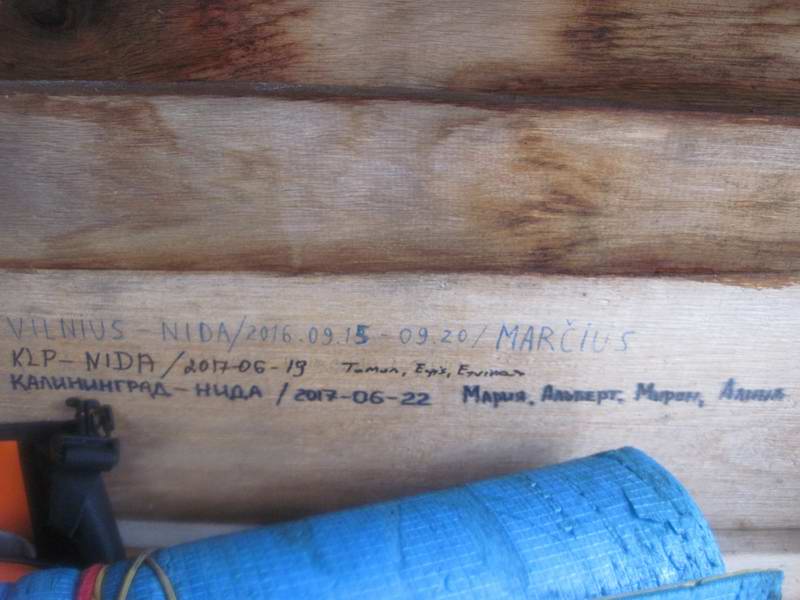 VILNIUS - NIDA/2016.09.15 - 09.20/ MARČIUS
KLP - NIDA / 2017-06-19
КАЛИНИНГРАД - НИДА / 2017-06-22 Мария, Альберт, Мирон,